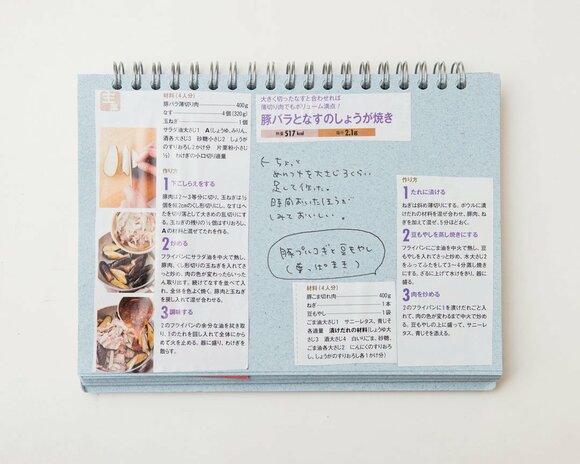 主
材料(4人分)
豚バラ薄切り肉 400g
なす 4個(320g)
玉ねぎ 1個
サラダ油大さじ1 A(しょうゆ、みりん、
酒各大さじ3 砂糖小さじ2 しょうが
のすりおろし2かけ分 片栗粉小さじ
½) わけぎの小口切り適量
作り方
1 下ごしらえをする
豚肉は2〜3等分に切り、玉ねぎは½
個を幅2cmのくし形切りにし、なすはへ
たを切り落として大きめの乱切りにす
る。玉ねぎの残りの½個はすりおろし、
Aの材料と混ぜてたれを作る。
2 炒める
フライパンにサラダ油を中火で熱し、
豚肉、くし形切りの玉ねぎを入れてさ
っと炒め、肉の色が変わったらいった
ん取り出す。続けてなすを並べて入
れ、全体を色よく焼く。豚肉と玉ねぎ
を戻し入れて混ぜ合わせる。
3 調味する
2のフライパンの余分な油を拭き取
り、1のたれを回し入れて全体にから
めて火を止める。器に盛り、わけぎを
散らす。
大きく切ったなすと合わせれば
薄切り肉でもボリューム満点!
豚バラとなすのしょうが焼き
熱量 517kcal 塩分 2.1g
ちょっと
めんつゆを大さじ3くらい
足して作った。
時間おいたほうが
しみておいしい。
豚プルコギと豆もやし
材料(4人分)
豚こま切れ肉 400g
ねぎ 1本
豆もやし 1袋
ごま油大さじ1 サニーレタス、青じそ
各適量 漬けだれの材料(しょうゆ大
さじ3 酒大さじ4 白いりごま、砂糖、
ごま油各大さじ2 にんにくのすりおろ
し、しょうがのすりおろし各1かけ分)
作り方
1 たれに漬ける
ねぎは斜め薄切りにする。ボウルに漬
けだれの材料を混ぜ合わせ、豚肉、ねぎ
を加えて混ぜ、5分ほどおく。
2 豆もやしを蒸し焼きにする
フライパンにごま油を中火で熱し、豆も
やしを入れてさっと炒め、水大さじ2
をふってふたをして3〜4分蒸し焼き
にする。ざるに上げて水けをきり、器に
盛る。
3 肉を炒める
2のフライパンに1を漬けだれごと入
れて、肉の色が変わるまで中火で炒め
る。豆もやしの上に盛って、サニーレ
タス、青じそを添える。